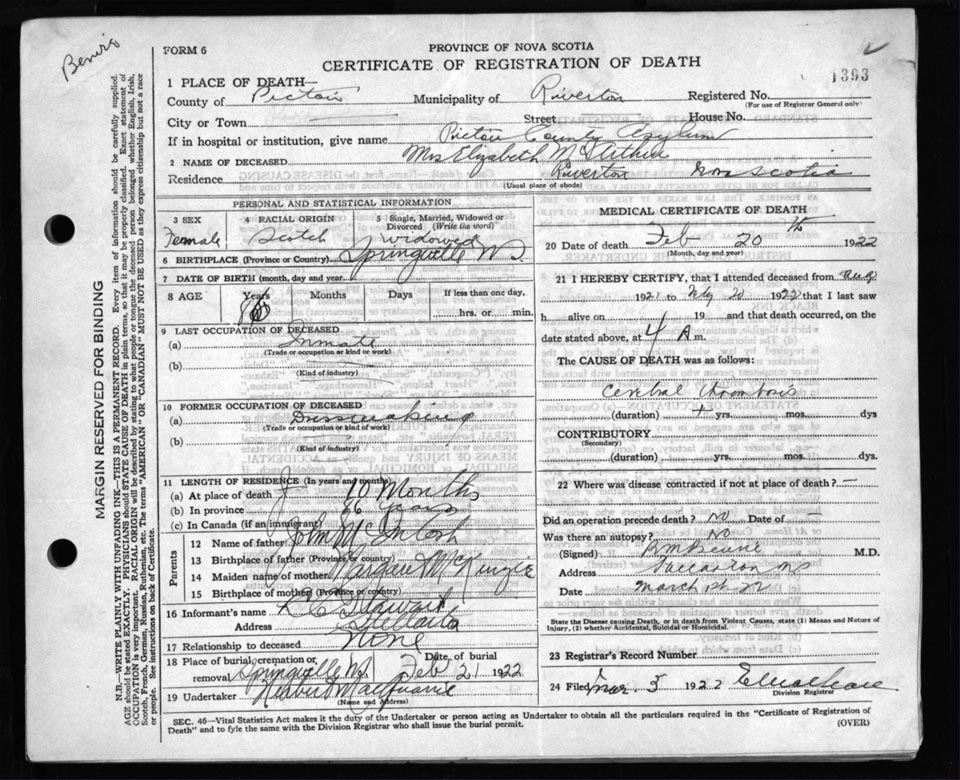 Benvie
MARGIN RESERVED FOR BINDING
N.B.—WRITE PLAINLY WITH UNFADING INK—THIS IS A PERMANENT RECORD. Every item of information should be carefully supplied.
AGE should be stated EXACTLY. PHYSICIANS should STATE CAUSE OF DEATH in plain terms, so that it may be properly classified. Exact statement of
OCCUPATION is very important. RACIAL ORIGIN will be described by stating to what people or tongue the deceased person belonged whether English, Irish,
Scotch, French, German, Russian, Ruthenian, etc. The terms "AMERICAN" or "CANADIAN" MUST NOT BE USED as they express citizenship but not a race
or people. See instructions on back of Certificate.
FORM 6
PROVINCE OF NOVA SCOTIA
CERTIFICATE OF REGISTRATION OF DEATH
1393
1 PLACE OF DEATH—
County of Pictou Municipality of Riverton Registered No.
(For use of Registrar General only)
City or Town Street House No.
If in hospital or institution, give name Pictou County Asylum
2 NAME OF DECEASED Mrs Elizabeth McArthur
Residence Riverton Nova Scotia
(Usual place of abode)
PERSONAL AND STATISTICAL INFORMATION
3 SEX Female
4 RACIAL ORIGIN Scotch
5 Single, Married, Widowed or Divorced (Write the word) widowed
6 BIRTHPLACE (Province or Country) Springville N.S.
7 DATE OF BIRTH (month, day and year)
8 AGE Years Months Days If less than one day,
86 hrs. or min.
9 LAST OCCUPATION OF DECEASED
(a) Inmate
(Trade or occupation or kind or work)
(b)
(Kind of industry)
10 FORMER OCCUPATION OF DECEASED
(a) Dressmaking
(Trade or occupation or kind of work)
(b)
(Kind of industry)
11 LENGTH OF RESIDENCE (In years and months)
(a) At place of death 10 Months
(b) In province 86 years
(c) In Canada (if an immigrant)
Parents
12 Name of father John McIntosh
13 Birthplace of father (Province or country)
14 Maiden name of mother Margaret McKinzie
15 Birthplace of mother (Province or country)
16 Informant's name Stewart
Address Stellarton
17 Relationship to deceased None
18 Place of burial, cremation or removal Springville N.S. Date of burial Feb 21 1922
19 Undertaker MacQuarrie
(Name and Address)
MEDICAL CERTIFICATE OF DEATH
20 Date of death Feb 20th 1922
(Month, day and year)
21 I HEREBY CERTIFY, that I attended deceased from
1921 to Feby 20 1922 that I last saw
h alive on 19 and that death occurred, on the
date stated above, at 4 A m.
The CAUSE OF DEATH was as follows:
Cerebral thrombosis
(duration) yrs. mos. dys
CONTRIBUTORY
(Secondary)
(duration) yrs. mos. dys.
22 Where was disease contracted if not at place of death? —
Did an operation precede death? No Date of —
Was there an autopsy? No
(Signed) M.D.
Address Stellarton NS
Date March 1st 22
State the Disease causing Death, or in death from Violent Causes, state (1) Means and Nature of
Injury, (2) whether Accidental, Suicidal or Homicidal.
23 Registrar's Record Number
24 Filed Mar. 5 1922
Division Registrar
SEC. 46—Vital Statistics Act makes it the duty of the Undertaker or person acting as Undertaker to obtain all the particulars required in the "Certificate of Registration of
Death" and to fyle the same with the Division Registrar who shall issue the burial permit. (OVER)